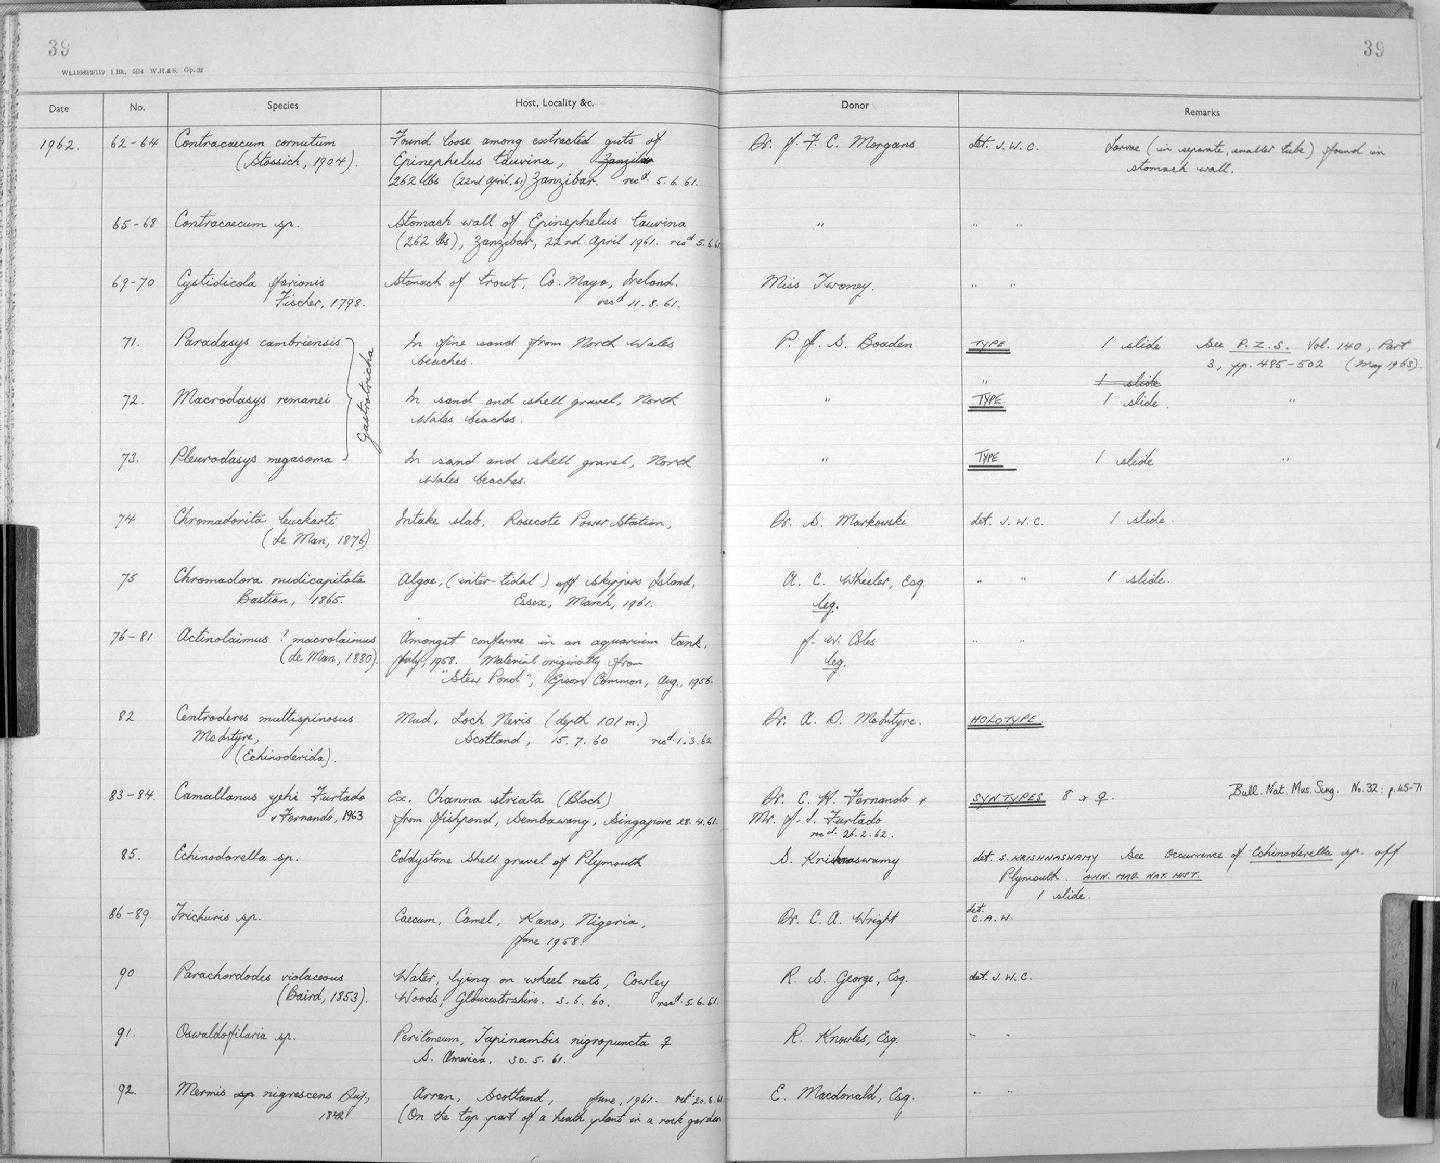 39
39
Date No. Species Host, Locality &c. Donor Remarks
1962. 62-64 Contracaecum cornutum Found loose among extracted guts of Dr. J. F. C. Morgans det. J.W.C. Larvae (in separate, smaller tube) found in
(Stossich, 1904). Epinephelus tauvina, Zanzibar stomach wall.
262 lbs (22nd April. 61) Zanzibar. recd. 5.6.61.
65-68 Contracaecum sp. Stomach wall of Epinephelus tauvina " " "
(262 lbs), Zanzibar, 22nd April 1961. recd 5.6.61
69-70 Cystidicola farionis Stomach of trout, Co. Mayo, Ireland. Miss Twomey. " "
Fischer, 1798. recd 11.8.61.
71. Paradasys cambriensis In fine sand from North Wales P. J. S. Boaden TYPE 1 slide See P.Z.S. Vol. 140, Part
beaches. 3, pp. 485-502 (May 1963).
Gastrotricha
" 1 slide
72. Macrodasys romanei In sand and shell gravel, North " TYPE 1 slide. "
Wales beaches.
73. Pleurodasys megasoma In sand and shell gravel, North " TYPE 1 slide "
Wales beaches.
74 Chromadorita leuckarti Intake slab, Rosecote Power Station, Dr. S. Markowski det. J.W.C. 1 slide.
(de Man, 1876)
75 Chromadora nudicapitata Algae, (inter-tidal) off Skippers Island, A. C. Wheeler, Esq. " " 1 slide.
Bastian, 1865. Essex, March, 1961. leg.
76-81 Actinolaimus ? macrolaimus Amongst confervae in an aquarium tank, J. W. Coles " "
(de Man, 1880). July, 1958. Material originally from leg.
"Stew Pond", Epsom Common, Aug., 1956.
82 Centroderes multispinosus Mud, Loch Nevis (depth 101 m.) Dr. A. D. McIntyre. HOLOTYPE
McIntyre, Scotland, 15.7.60 recd. 1.3.62
(Echinoderida).
83-84. Camallanus yehi Furtado Ex. Channa striata (Bloch) Dr. C. H. Fernando & SYNTYPES 8 & ♀. Bull. Nat. Mus. Sing. No. 32: p.65-71
& Fernando, 1963 from fishpond, Sembawang, Singapore 28.4.61. Mr. J. I. Furtado
recd. 26.2.62.
85. Echinoderella sp. Eddystone Shell gravel of Plymouth S. Krishnaswamy det. S. KRISHNASWAMY See Occurrence of Echinoderella sp. off
Plymouth. ANN. MAG. NAT. HIST.
1 slide.
86-89 Trichuris sp. Caecum, Camel, Kano, Nigeria, Dr. C. A. Wright det. C.A.W.
June 1958.
90 Parachordodes violaceous Water, lying on wheel nets, Cowley R. S. George, Esq. det. J.W.C.
(Baird, 1853). Woods, Gloucestershire. 3.6.60. recd. 5.6.61.
91. Oswaldofilaria sp. Peritoneum, Tupinambis nigropuncta ♀ R. Knowles, Esq. " "
S. America. 30.5.61.
92. Mermis sp nigrescens Duj, Arran, Scotland, June, 1961. recd 20.6.61 E. Macdonald, Esq. " "
1842 (On the top part of a heath plant in a rock garden